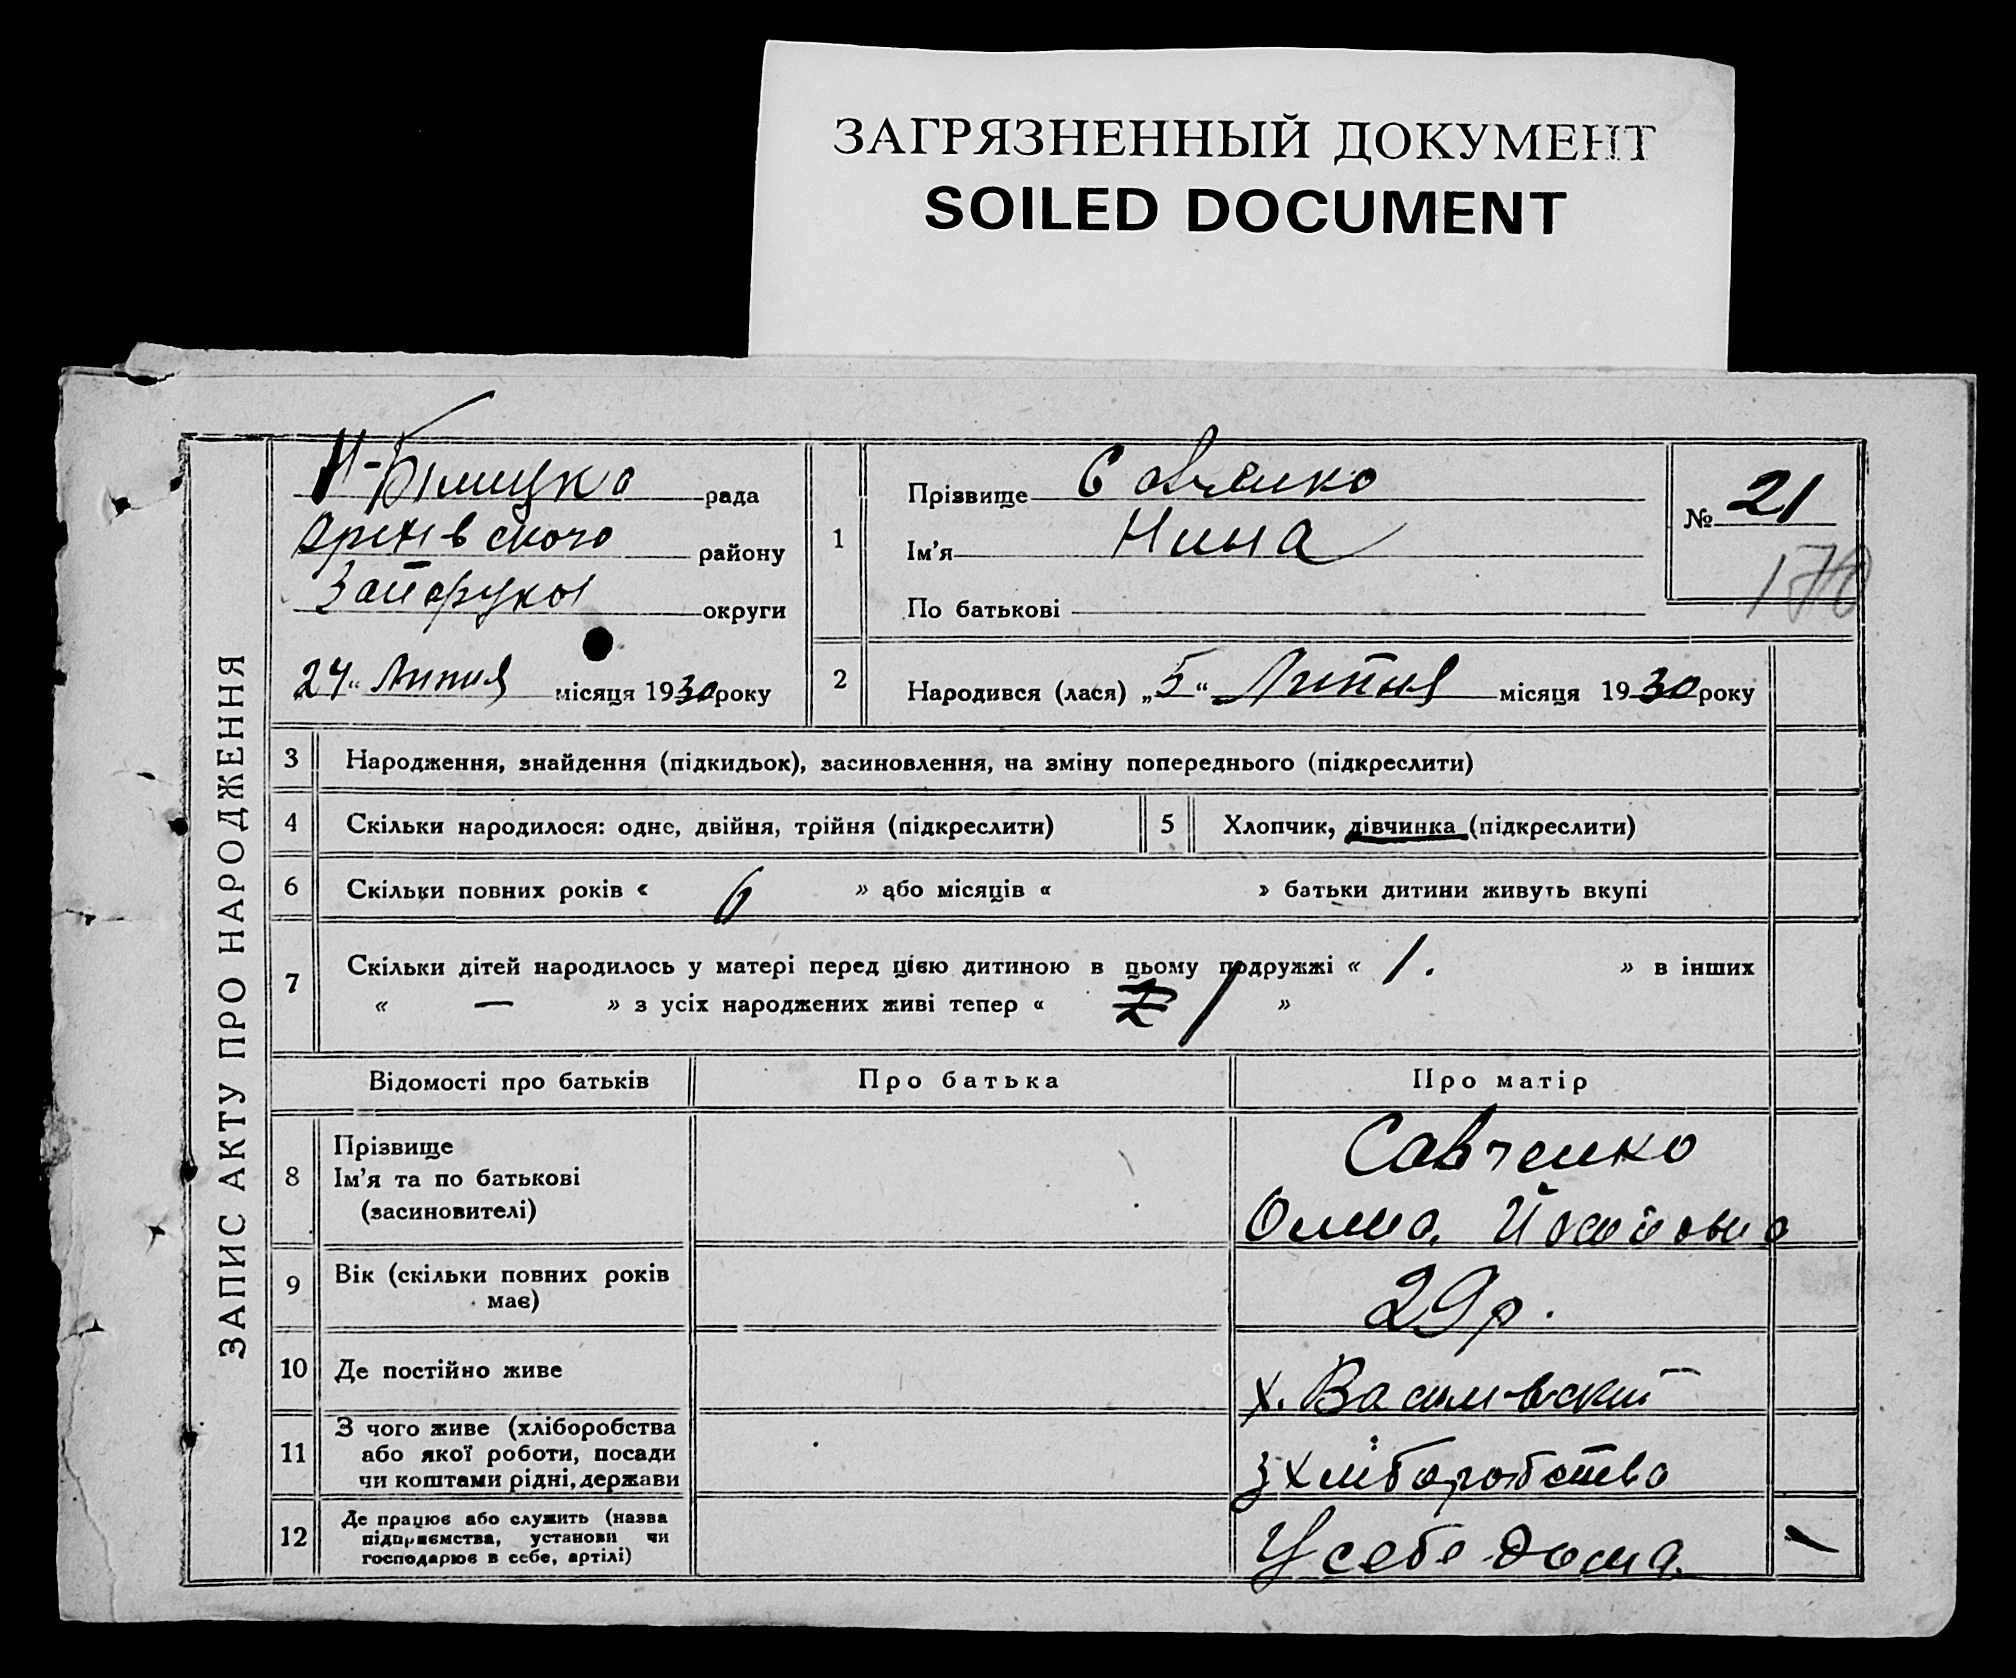 ЗАГРЯЗНЕННЫЙ ДОКУМЕНТ
SOILED DOCUMENT
ЗАПИС АКТУ ПРО НАРОДЖЕННЯ
рада
району
округи
24 " Липня місяця 1930 року
1 Прізвище Савченко
Ім'я Нина
По батькові
№ 21
170
2 Народився (лася) „ 5 " Липня місяця 1930 року
3 Народження, знайдення (підкидьок), засиновлення, на зміну попереднього (підкреслити)
4 Скільки народилося: одне, двійня, трійня (підкреслити) 5 Хлопчик, дівчинка (підкреслити)
6 Скільки повних років « 6 » або місяців « » батьки дитини живуть вкупі
7 Скільки дітей народилось у матері перед цією дитиною в цьому подружжі « 1. » в інших
« — » з усіх народжених живі тепер « 1 »
Відомості про батьків Про батька Про матір
8 Прізвище
Ім'я та по батькові
(засиновителі)
Савченко
9 Вік (скільки повних років
має)
29 р.
10 Де постійно живе
х.
11 З чого живе (хліборобства
або якої роботи, посади
чи коштами рідні, держави
з хліборобства
12 Де працює або служить (назва
підприємства, установи чи
господарює в себе, артілі)
У себе дома.